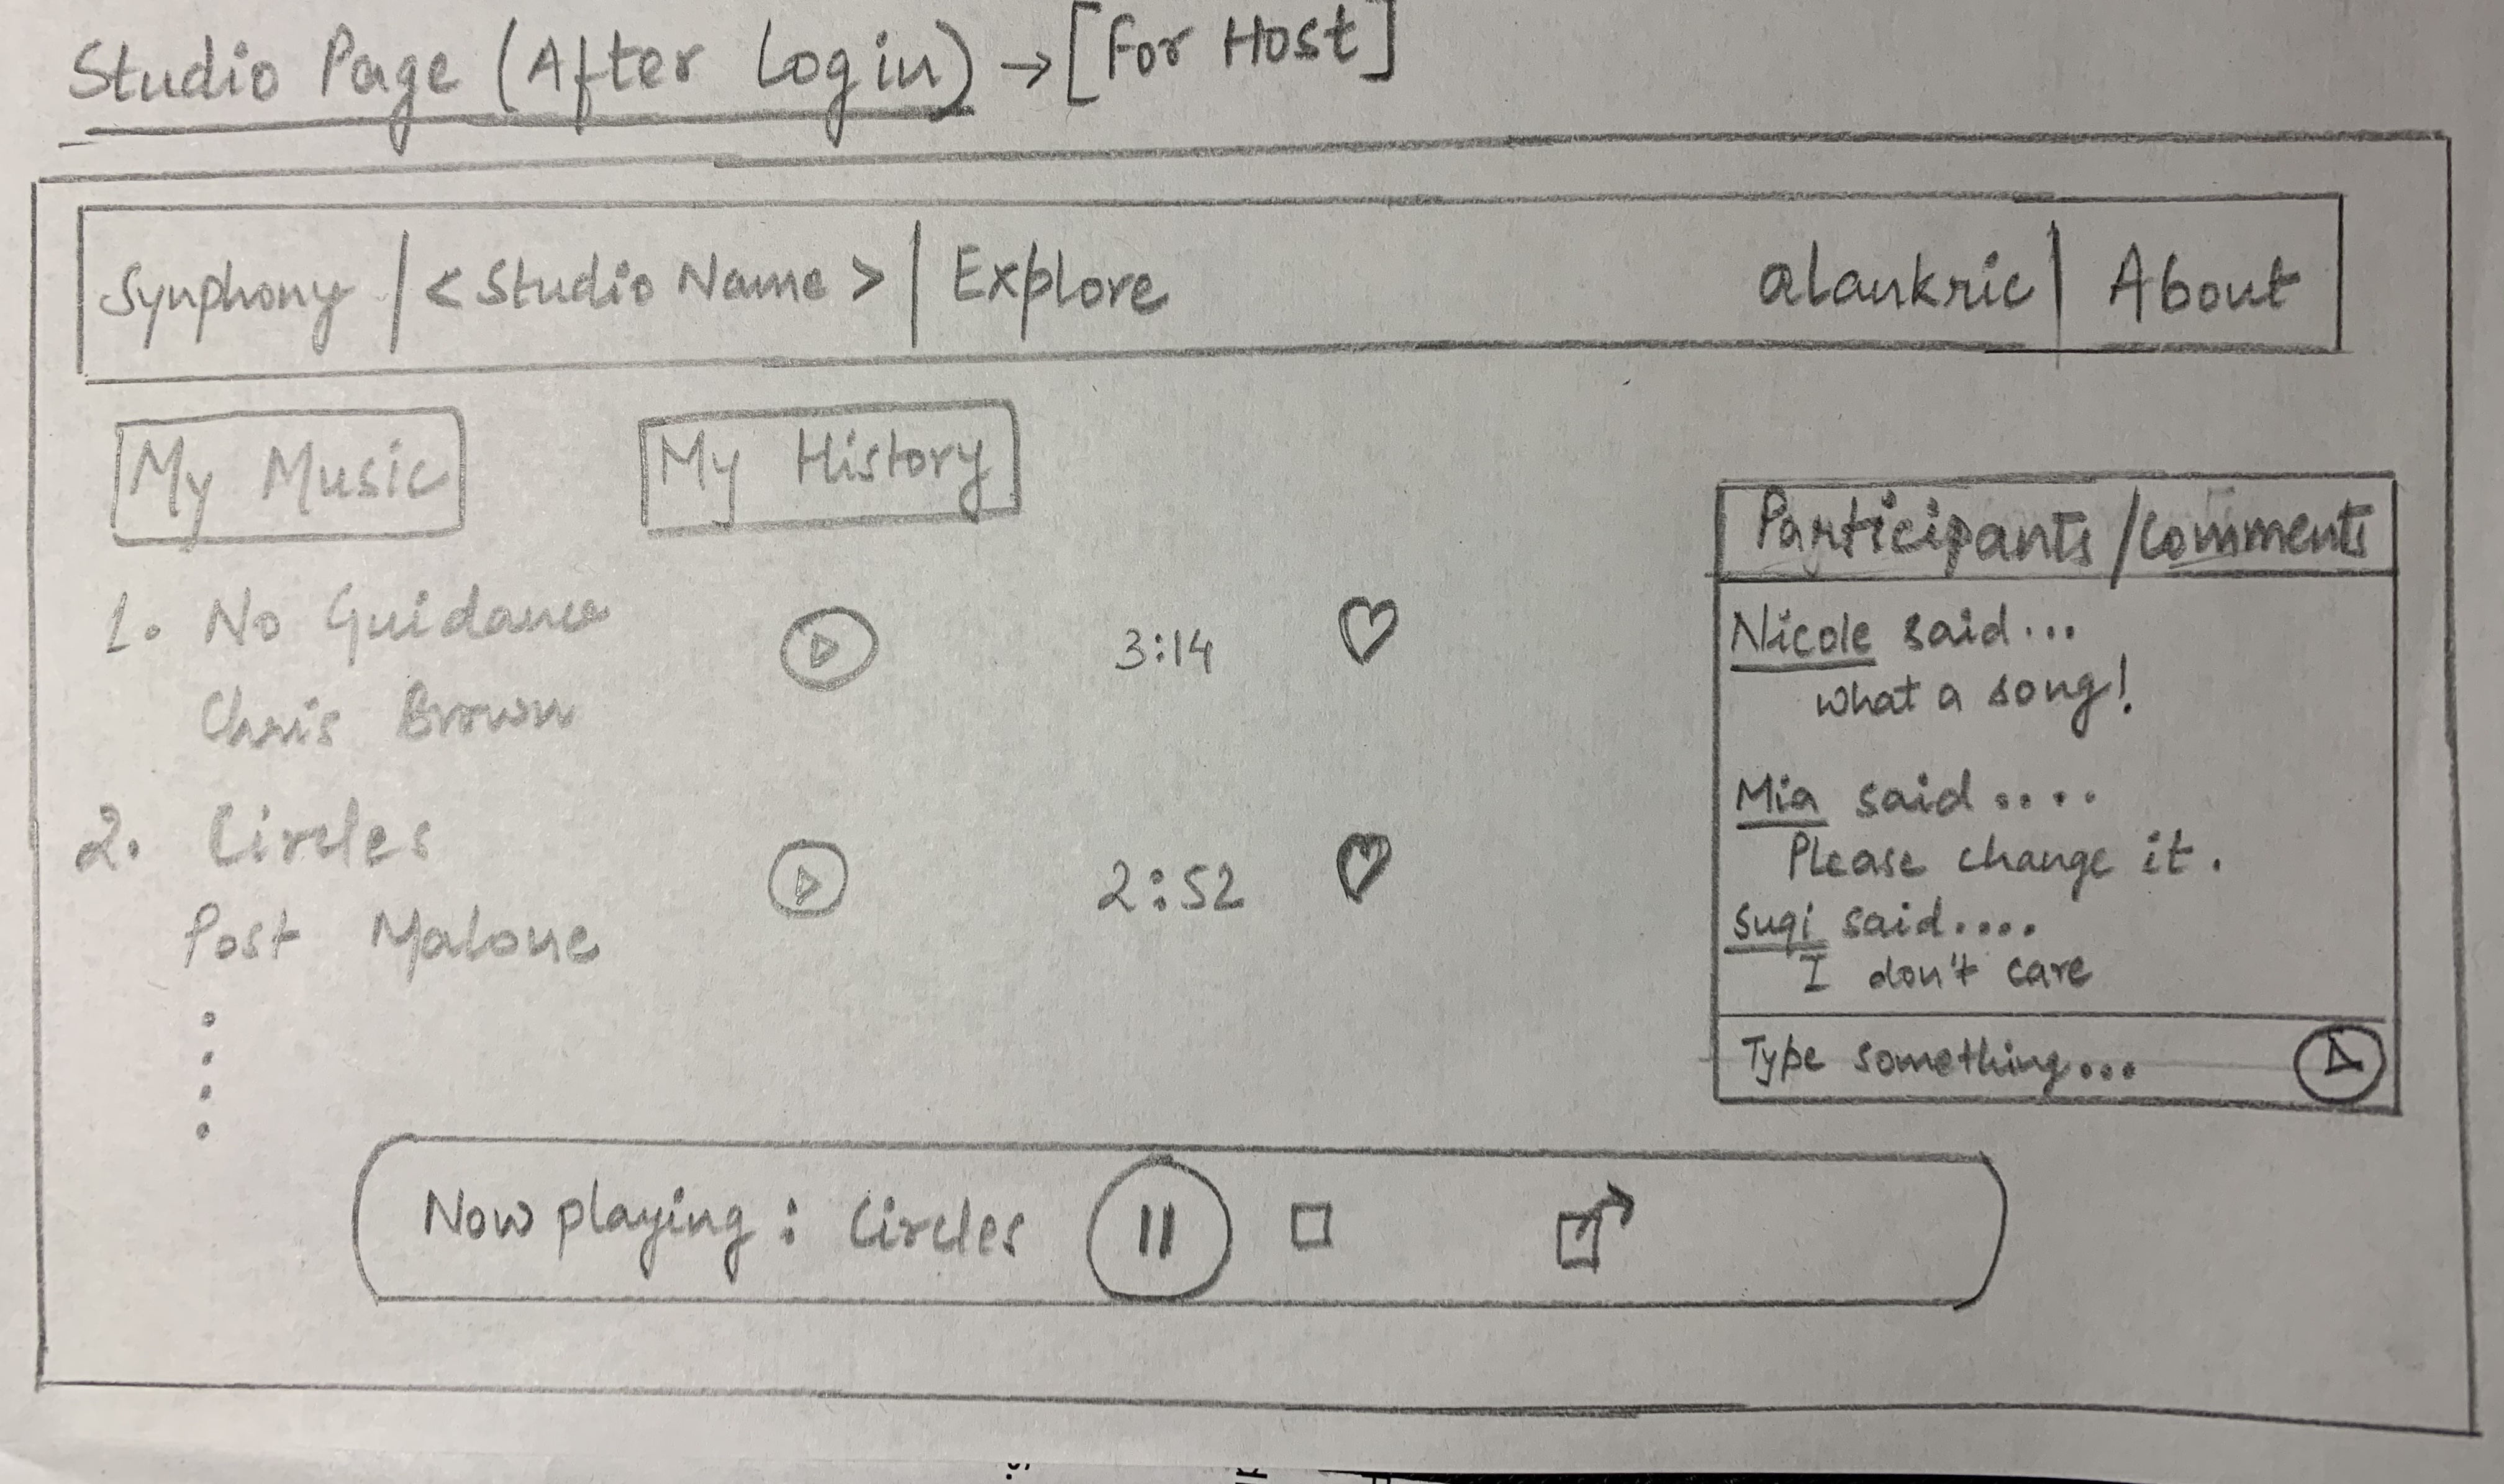 Studio Page (After Login) → [For Host]
Synphony | < Studio Name > | Explore
alankric | About
My Music
My History
1. No Guidance
Chris Brown
3:14
2. Circles
Post Malone
2:52
Participants / Comments
Nicole said...
what a song!
Mia said....
Please change it.
Sugi said....
I don't care
Type something...
Now playing : Circles